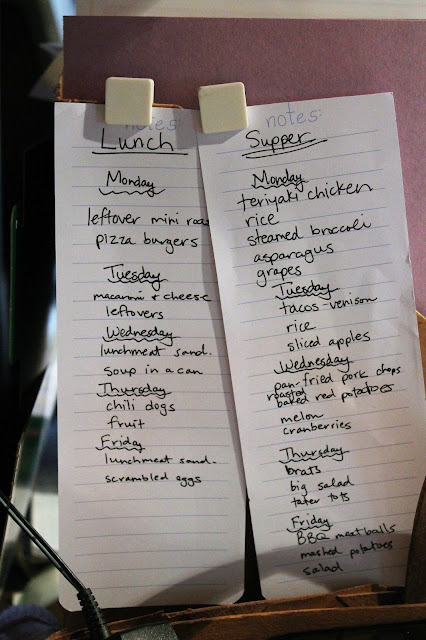 notes:
Lunch
Monday
leftover mini roas
pizza burgers
Tuesday
macaroni + cheese
leftovers
Wednesday
lunchmeat sand.
soup in a can
Thursday
chili dogs
fruit
Friday
lunchmeat sand.
scrambled eggs
notes:
Supper
Monday
teriyaki chicken
rice
steamed broccoli
asparagus
grapes
Tuesday
tacos-venison
rice
sliced apples
Wednesday
pan-fried pork chops
roasted
baked red potatoes
melon
cranberries
Thursday
brats
big salad
tater tots
Friday
BBQ meatballs
mashed potatoes
salad